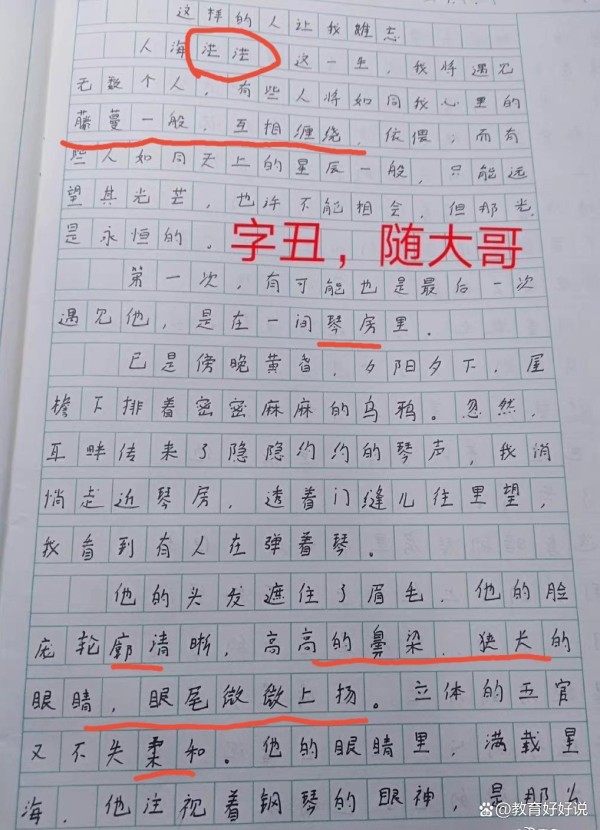 这样的人让我难忘
人海茫茫，这一生，我将遇见
无数个人，有些人将如同我心里的
藤蔓一般，互相缠绕，依偎；而有
些人如同天上的星辰一般，只能远
望其光芒，也许不能相会，但那光
是永恒的。
字丑，随大哥
第一次，有可能也是最后一次
遇见他，是在一间琴房里。
已是傍晚黄昏，夕阳夕下，屋
檐下排着密密麻麻的乌鸦。忽然，
耳畔传来了隐隐约约的琴声，我悄
悄走近琴房，透着门缝儿往里望，
我看到有人在弹着琴。
他的头发遮住了眉毛，他的脸
庞轮廓清晰，高高的鼻梁，狭长的
眼睛，眼尾微微上扬。立体的五官
又不失柔和。他的眼睛里，满载星
海，他注视着钢琴的眼神，是那
@教育好好说